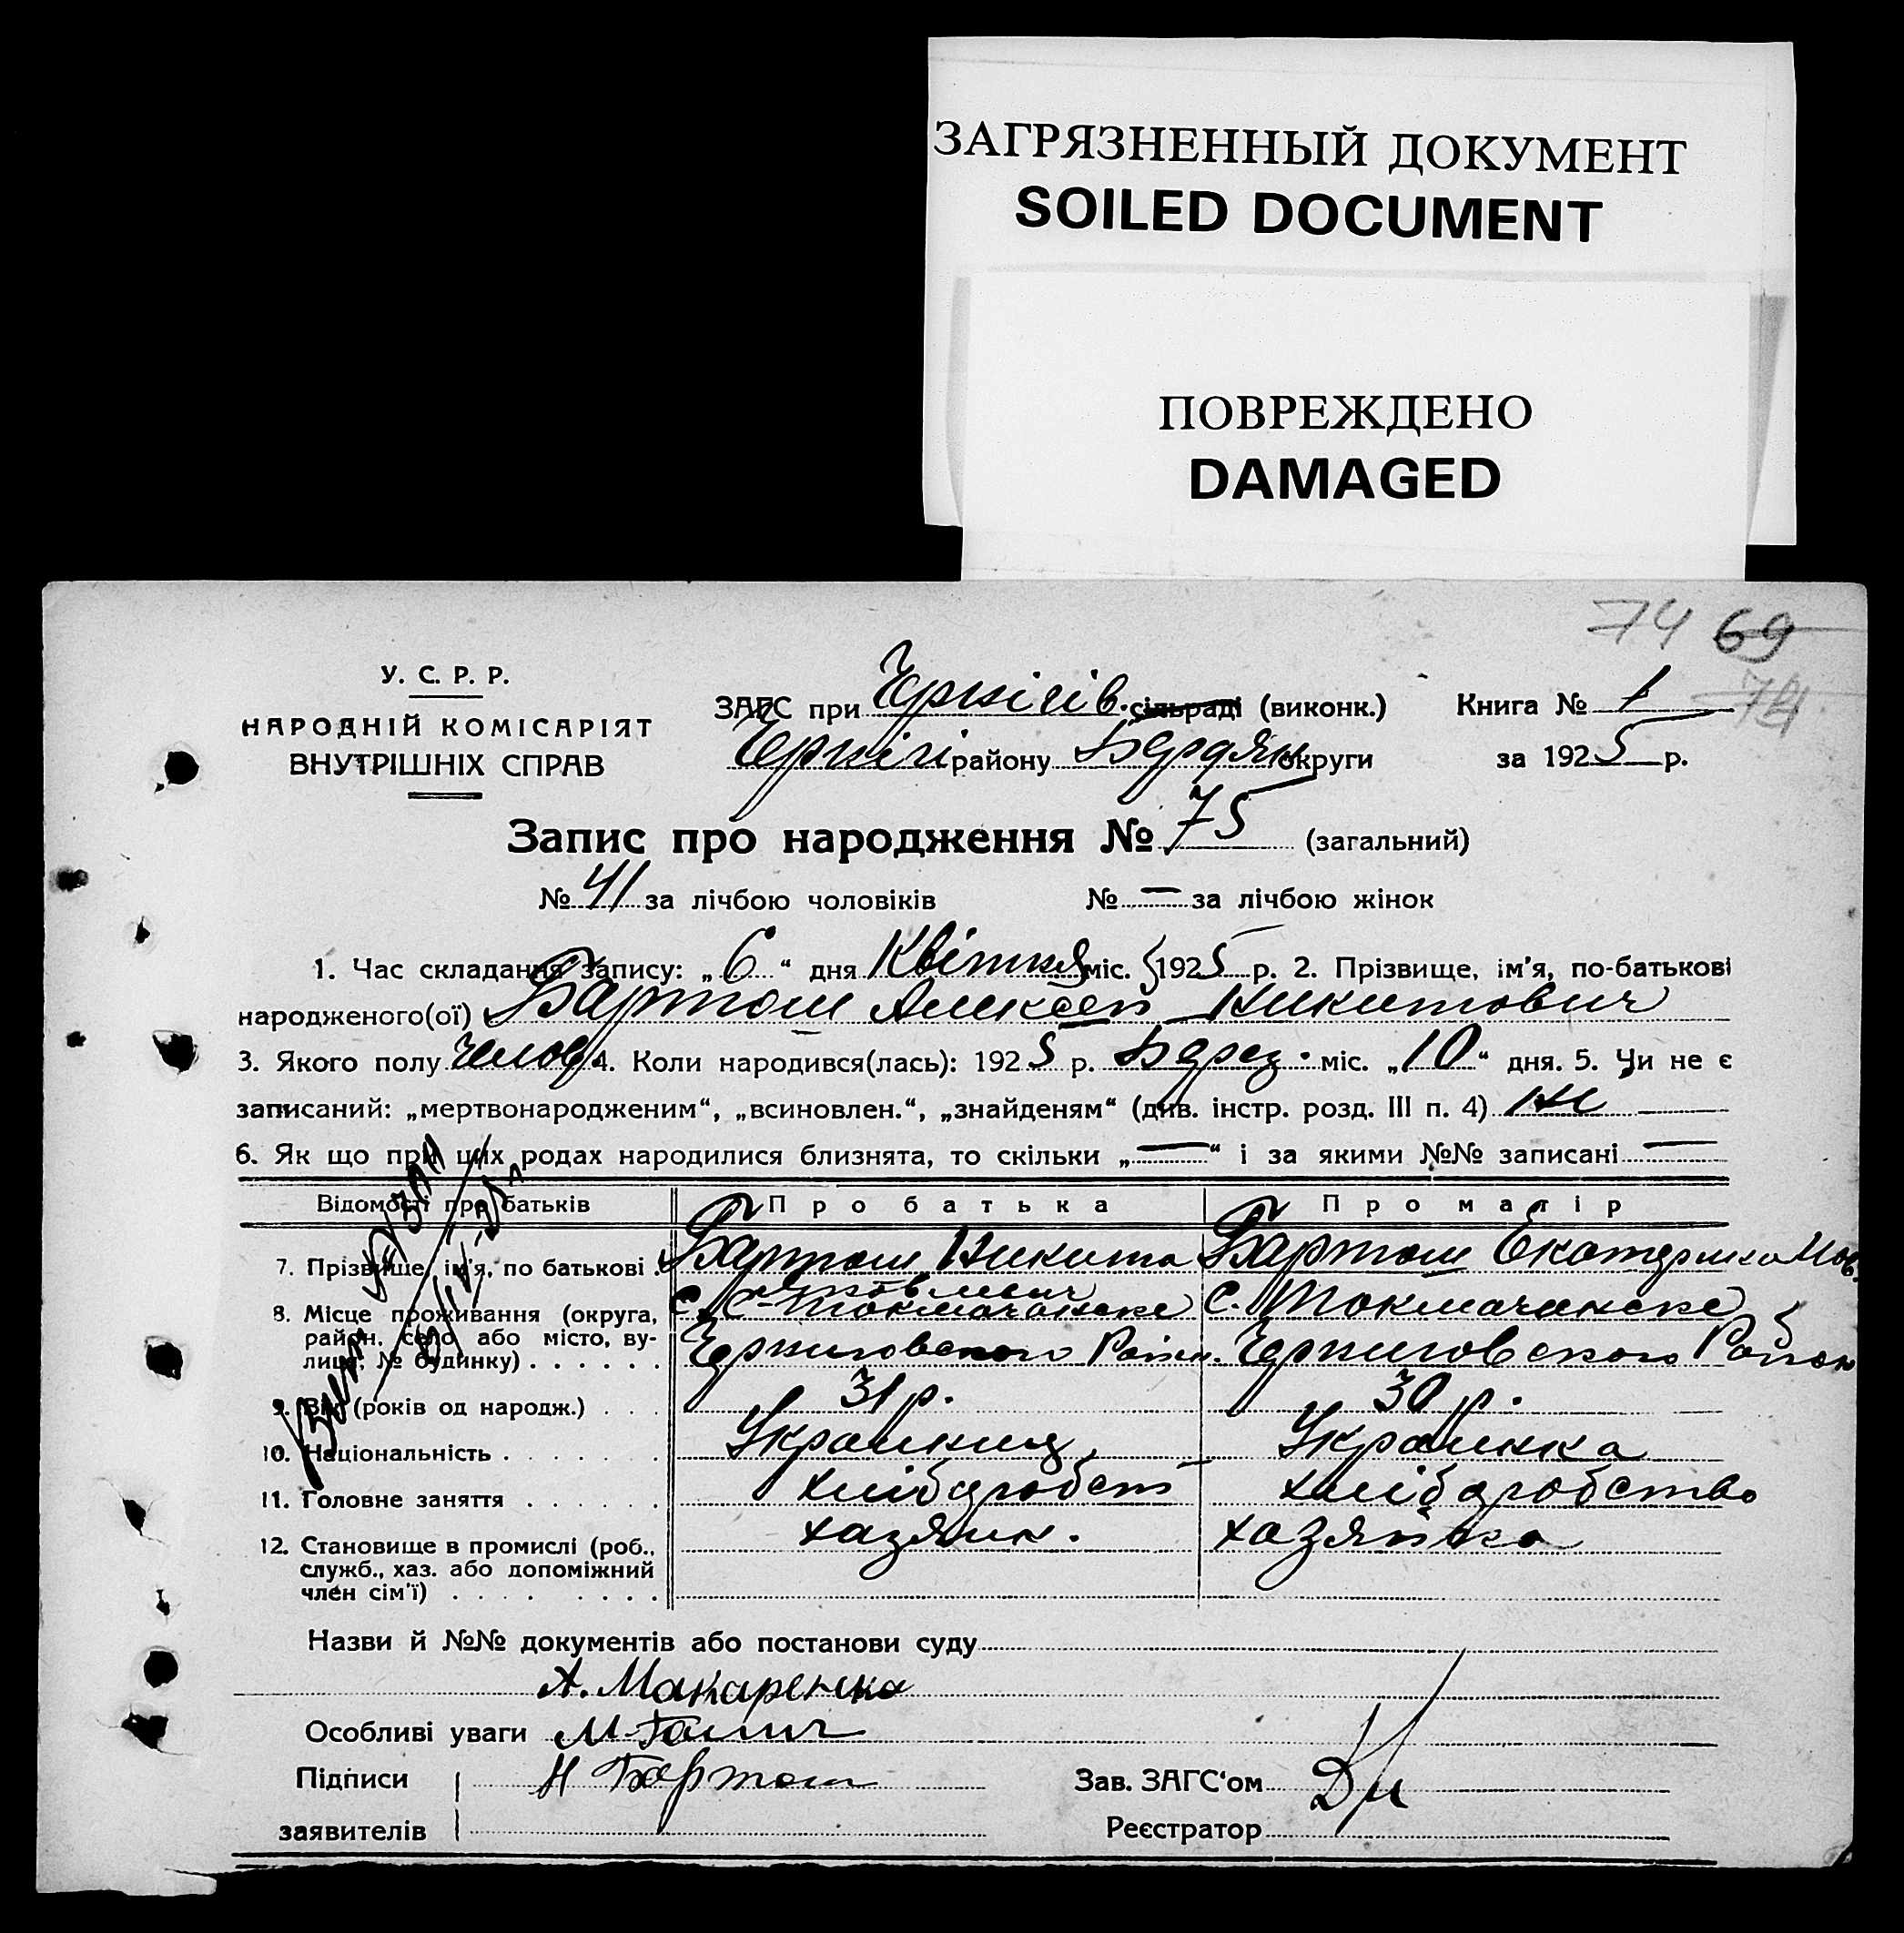 ЗАГРЯЗНЕННЫЙ ДОКУМЕНТ
SOILED DOCUMENT
ПОВРЕЖДЕНО
DAMAGED
74 69
74
У. С. Р. Р.
НАРОДНІЙ КОМІСАРІЯТ
ВНУТРІШНІХ СПРАВ
ЗАГС при Чернігів. сільраді (виконк.) Книга № 1
Чернігі району Бердян округи за 1925 р.
Запис про народження № 75 (загальний)
№ 41 за лічбою чоловіків № — за лічбою жінок
1. Час складання запису: „6“ дня Квітня міс. 1925 р. 2. Прізвище, ім'я, по-батькові
народженого(ої) Бартош Алексей Никитович
3. Якого полу Челов 4. Коли народився(лась): 1925 р. Берез. міс. „10“ дня. 5. Чи не є
записаний: „мертвонародженим“, „всиновлен.“, „знайденям“ (див. інстр. розд. III п. 4) Не
6. Як що при цих родах народилися близнята, то скільки „—“ і за якими №№ записані —
Відомості про батьків Про батька Про матір
7. Прізвище, ім'я, по батькові . Бартош Никита Бартош Екатерина
8. Місце проживання (округа, район, село або місто, вулиця, № будинку) . . . . . . С. Токмачанске С. Токмачанске
Черниговского Район. Черниговского Район
9. Вік (років од народж.) . . . 31 р. 30 р.
10. Національність . . . . . . . Украинец Украинка
11. Головне заняття . . . . . . хлібаробст хлібаробство
12. Становище в промислі (роб., хазяин. хазяйка
служб., хаз. або допоміжний
член сім'ї) . . . . . . . .
Назви й №№ документів або постанови суду
А. Макаренко
Особливі уваги М.
Підписи Н Бартош Зав. ЗАГС'ом
заявителів Реєстратор